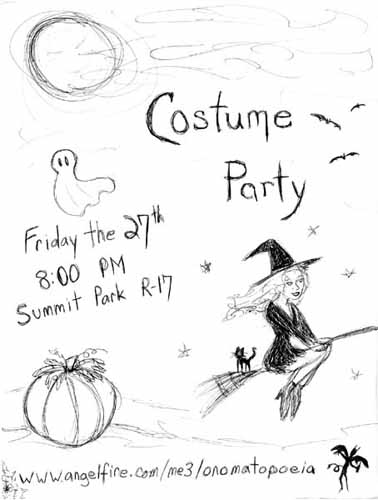 Costume
Party
Friday the 27th
8:00 PM
Summit Park R-17
www.angelfire.com/me3/onomatopoeia